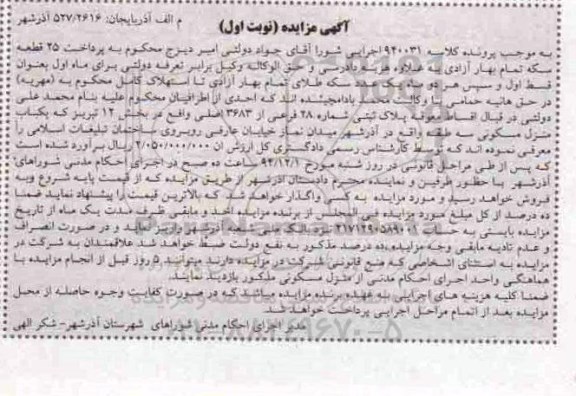 آگهی مزایده (نوبت اول)
م الف آذربایجان: ۵۲۷/۲۶۱۶ آذرشهر
به موجب پرونده کلاسه ۹۴۰۰۳۱ اجرایی شورا آقای جواد دولتی امیر دیزج محکوم به پرداخت ۲۵ قطعه
سکه تمام بهار آزادی به علاوه هزینه دادرسی و حق الوکاله وکیل برابر تعرفه دولتی برای ماه اول بعنوان
قسط اول و سپس هر دو ماه یک سکه طلای تمام بهار آزادی تا استهلاک کامل محکوم به (مهریه)
در حق هانیه حمامی با وکالت محمد بادامچی شده اند که احدی از اطرافیان محکوم علیه بنام محمد علی
دولتی در قبال اقساط معوقه پلاک ثبتی شماره ۲۸ فرعی از ۳۶۸۳ اصلی واقع در بخش ۱۲ تبریز که یکباب
منزل مسکونی سه طبقه واقع در آذرشهر میدان نماز خیابان عارفی روبروی ساختمان تبلیغات اسلامی را
معرفی نموده اند که توسط کارشناس رسمی دادگستری کل ارزش آن ۲/۰۵۰/۰۰۰/۰۰۰ ریال برآورد شده است
که پس از طی مراحل قانونی در روز شنبه مورخ ۹۴/۱۲/۱ ساعت ده صبح در اجرای احکام مدنی شوراهای
آذرشهر با حضور طرفین و نماینده محترم دادستان آذرشهر از طریق مزایده که از قیمت پایه شروع و به
فروش خواهد رسید و مورد مزایده به کسی واگذار خواهد شد که بالاترین قیمت را پیشنهاد نماید ضمنا
ده درصد از کل مبلغ مورد مزایده فی المجلس از برنده مزایده اخذ و مابقی ظرف مدت یک ماه از تاریخ
مزایده بایستی به حساب شعبه آذرشهر واریز نماید و در صورت انصراف
و عدم تادیه مابقی وجه مزایده، ده درصد مذکور به نفع دولت ضبط خواهد شد علاقمندان به شرکت در
مزایده به استثنای اشخاصی که منع قانونی شرکت در مزایده دارند میتوانند ۵ روز قبل از انجام مزایده با
هماهنگی واحد اجرای احکام مدنی از منزل مسکونی مذکور بازدید نمایند.
ضمنا کلیه هزینه های اجرایی به عهده برنده مزایده میباشد که در صورت کفایت وجوه حاصله از محل
مزایده بعد از اتمام مراحل اجرایی پرداخت خواهد شد.
مدیر اجرای احکام مدنی شوراهای شهرستان آذرشهر- شکر الهی